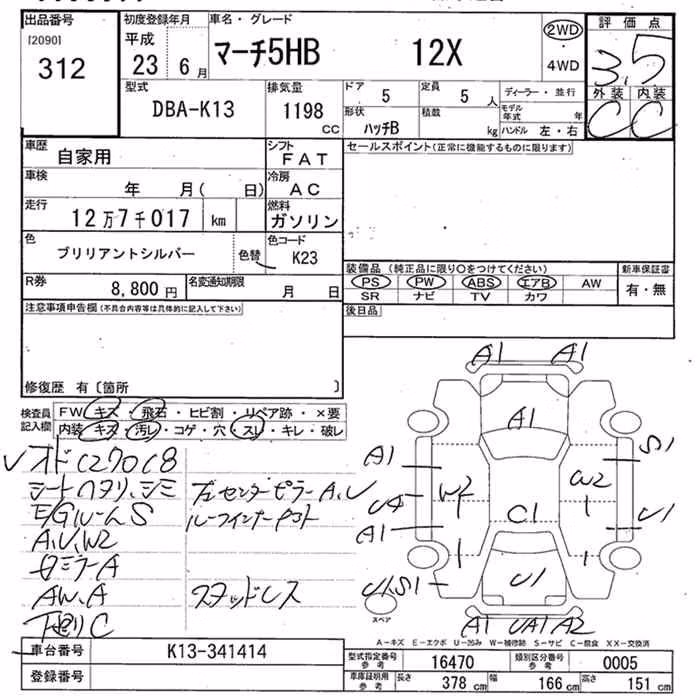 出品番号
[2090]
312
初度登録年月
平成
23 6月
車名・グレード
マーチ5HB 12X
2WD
4WD
評価点
3.5
外装 内装
C C
型式
DBA-K13
排気量
1198
CC
ドア
5
定員
5 人
形状
ハッチB
積載
kg
ディーラー・並行
モデル年式 年
ハンドル 左・右
車歴
自家用
シフト
FAT
車検
年 月( 日)
冷房
AC
走行
12万7千017 km
燃料
ガソリン
色
ブリリアントシルバー
色替
色コード
K23
R券
8,800円
名変通知期限
月 日
セールスポイント(正常に機能するものに限ります)
装備品 (純正品に限り○をつけてください)
新車保証書
PS PW ABS エアB AW
有・無
SR ナビ TV カワ
後日品
注意事項申告欄(不具合内容等は具体的に記入して下さい)
修復歴 有〔箇所 〕
検査員記入欄
FW キズ・飛石・ヒビ割・リペア跡・×要
内装 キズ・汚レ・コゲ・穴・スレ・キレ・破レ
シミ
E/GルームS
センターピラーA、U
A、U、W2
ドミラーA
AW、A
スタッドレス
下廻りC
A1 A1
A1
A1
U4
A1
W2
W2
S1
U1
C1
U1
U1S1
A1 UA1 A2
スペア
A-キズ E-エクボ U-凹み W-補修跡 S-サビ C-腐食 XX-交換済
車台番号
K13-341414
登録番号
型式指定番号
参考
16470
類別区分番号
参考
0005
車庫証明用
参考
長さ 378 cm
幅 166 cm
高さ 151 cm